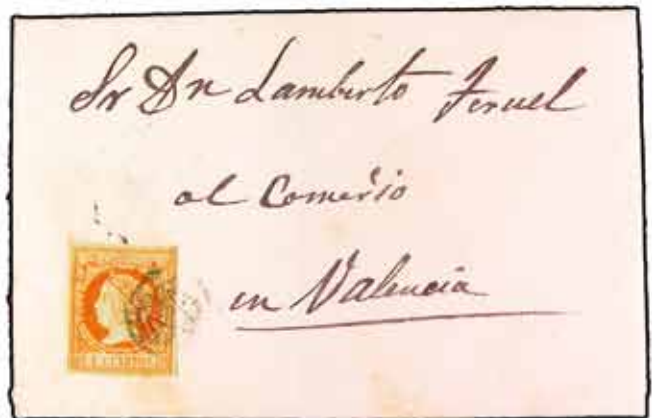 Sr Dn Lamberto Teruel
al Comercio
en Valencia